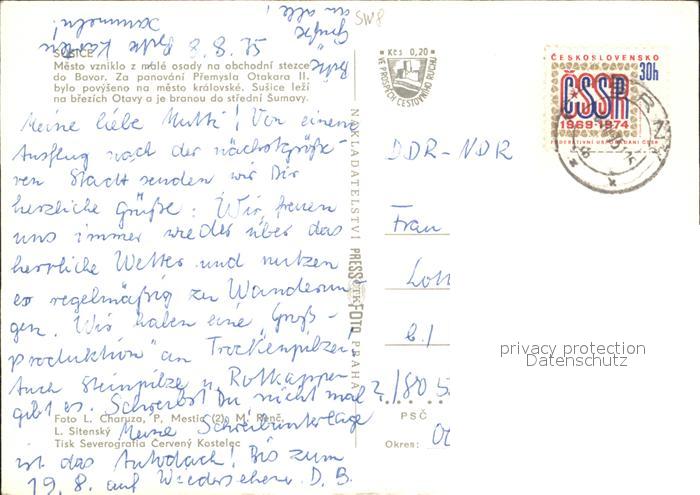 SUŠICE
Město vzniklo z malé osady na obchodní stezce
do Bavor. Za panování Přemysla Otakara II.
bylo povýšeno na město královské. Sušice leží
na březích Otavy a je branou do střední Šumavy.
8.8.75
Bitte Karten
sammeln!
Grüße
an alle!
Meine liebe Mutti! Von einem
Ausflug nach der nächstgröße-
ren Stadt senden wir Dir
herzliche Grüße. Wir freuen
uns immer wieder über das
herrliche Wetter und nutzen
es regelmäßig zu Wanderun-
gen. Wir haben eine „Groß-
produktion" an Trockenpilzen!
Auch Steinpilze u. Rotkappen
gibt es. Schreibst Du nicht mal?
Meine Schreibunterlage
ist das Autodach! Bis zum
19.8. auf Wiedersehen D. B.
Foto L. Charuza, P. Mestic (2), M. Renč,
L. Sitenský
Tisk Severografia Červený Kostelec
NAKLADATELSTVÍ PRESSFOTO PRAHA
SW8
Kčs 0,20
VE PROSPĚCH CESTOVNÍHO RUCHU
ČESKOSLOVENSKO
30h
ČSSR
1969-1974
FEDERATIVNÍ USPOŘÁDÁNÍ ČSSR
DDR-NDR
Frau
privacy protection
Datenschutz
PSČ
Okres: